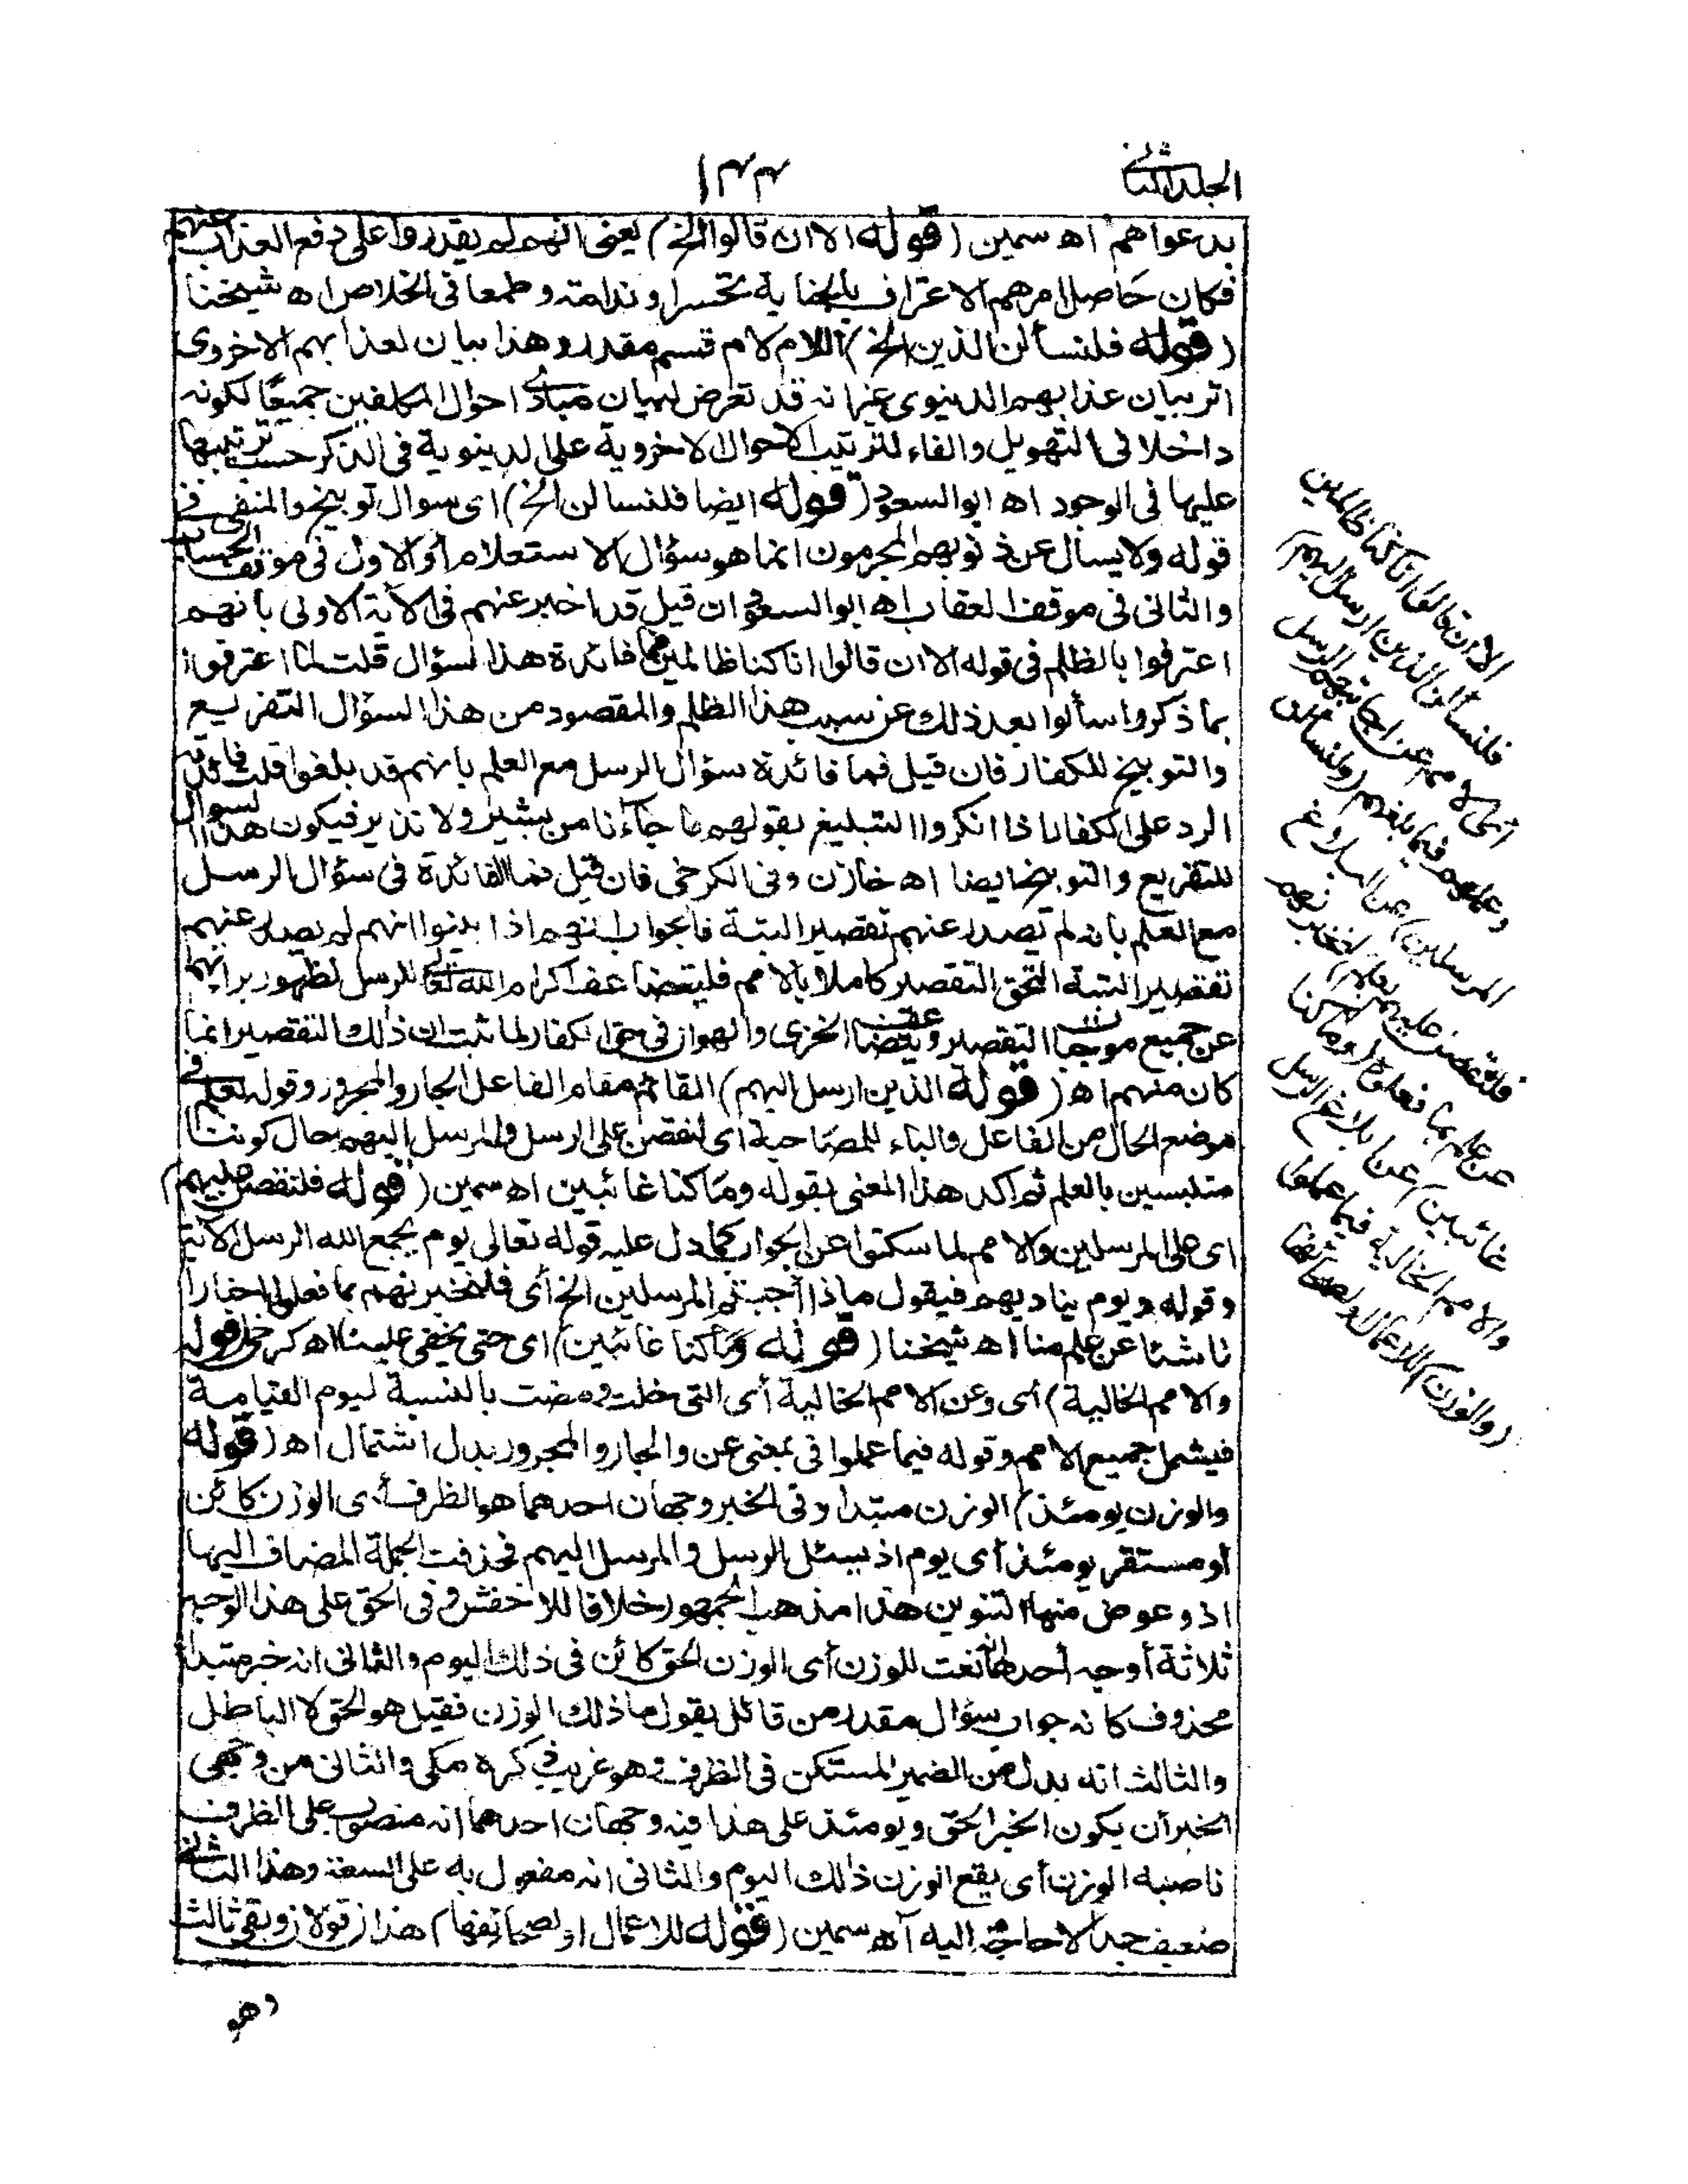 الجلد الثانى
١٤٤
بدعواهم اه سمين (قوله الا ان قالوا الخ) يعنى انهم لم يقدروا على دفع العذاب عنهم
فكان حاصل امرهم الاعتراف بالجناية تحسرا وندامة وطمعا فى الخلاص اه شيخنا
(قوله فلنسألن الذين الخ) اللام لام قسم مقدر وهذا بيان لعذابهم الاخروى
اثر بيان عذابهم الدنيوى غير انه قد تعرض لبيان مبادى احوال المكلفين جميعًا لكونه
داخلا فى التهويل والفاء لترتيب الاحوال الاخروية على الدينوية فى الذكر حسب ترتيبها
عليها فى الوجود اه ابو السعود (قوله ايضا فلنسالن الخ) اى سوال توبيخ والمنفى فى
قوله ولا يسأل عن ذنوبهم المجرمون انما هو سؤال الاستعلام أو الاول فى موقف الحساب
والثانى فى موقف العقاب اه ابو السعود ان قيل قد اخبر عنهم فى الآية الاولى بانهم
اعترفوا بالظلم فى قوله الا ان قالوا انا كنا ظالمين فما فائدة هذا السؤال قلت لما اعترفوا
بما ذكروا سألوا بعد ذلك عن سبب هذا الظلم والمقصود من هذا السؤال التقريع
والتوبيخ للكفار فان قيل فما فائدة سؤال الرسل مع العلم بانهم قد بلغوا قلت فائدته
الرد على الكفار اذا انكروا التبليغ بقولهم ما جاءنا من بشير ولا نذير فيكون هذا السوال
للتقريع والتوبيخ ايضا اه خازن وفى الكرخى فان قيل فما الفائدة فى سؤال الرسل
مع العلم بانه لم تصدر عنهم تقصير البتة فالجواب انهم اذا بينوا انهم لم يصدر عنهم
تقصير البتة التحق التقصير كاملا بالامم فليتضاعف اكرام الله تعالى للرسل لظهور براءتهم
عن جميع موجبات التقصير ويتضاعف الخزى والهوان فى حق الكفار لما ثبت ان ذلك التقصير انما
كان منهم اه (قوله الذين ارسل اليهم) القائم مقام الفاعل الجار والمجرور وقوله بعلم فى
موضع الحال من الفاعل والباء للمصاحبة اى لنقصن على الرسل والمرسل اليهم حال كوننا
متلبسين بالعلم ثم اكد هذا المعنى بقوله وما كنا غائبين اه سمين (قوله فلنقصن عليهم)
اى على المرسلين والامم لما سكتوا عن الجواب كما دل عليه قوله تعالى يوم يجمع الله الرسل الآية
وقوله ويوم يناديهم فيقول ماذا أجبتم المرسلين الخ أى فلنخبرنهم بما فعلوا اخبارا
ناشئا عن علم منا اه شيخنا (قوله وما كنا غائبين) اى حتى يخفى علينا اه كرخى (قوله
والامم الخالية) أى وعن الامم الخالية أى التى خلت ومضت بالنسبة ليوم القيامة
فيشمل جميع الامم وقوله فيما عملوا فى بمعنى عن والجار والمجرور بدل اشتمال اه (قوله
والوزن يومئذ) الوزن مبتدا وفى الخبر وجهان احدهما هو الظرف أى الوزن كائن
أو مستقر يومئذ أى يوم اذ يسئل الرسل والمرسل اليهم فحذفت الجملة المضاف اليها
اذ وعوض منها التنوين هذا مذهب الجمهور خلافا للاخفش وفى الحق على هذا الوجه
ثلاثة أوجه أحدها انه نعت للوزن أى الوزن الحق كائن فى ذلك اليوم والثانى انه خبر مبتدأ
محذوف كانه جواب سؤال مقدر من قائل يقول ما ذلك الوزن فقيل هو الحق لا الباطل
والثالث انه بدل من الضمير المستكن فى الظرف وهو غريب ذكره مكى والثانى من وجهى
الخبر أن يكون الخبر الحق ويومئذ على هذا فيه وجهان احدهما انه منصوب على الظرف
ناصبه الوزن أى يقع الوزن ذلك اليوم والثانى انه مفعول به على السعة وهذا الثانى
ضعيف جدا لا حاجة اليه اه سمين (قوله للاعمال او لصحائفها) هذان قولان وبقى ثالث
وهو
الا ان قالوا انا كنا ظالمين
فلنسألن الذين ارسل اليهم
أى الامم عن اجابتهم الرسل
وعملهم فيما بلغهم (ولنسألن
المرسلين) عن البلاغ
فلنقصن عليهم بعلم) لنخبرنهم
عن علم بما فعلوه (وما كنا
غائبين) عن ابلاغ الرسل
والامم الخالية فيما عملوا
(والوزن) للاعمال او لصحائفها